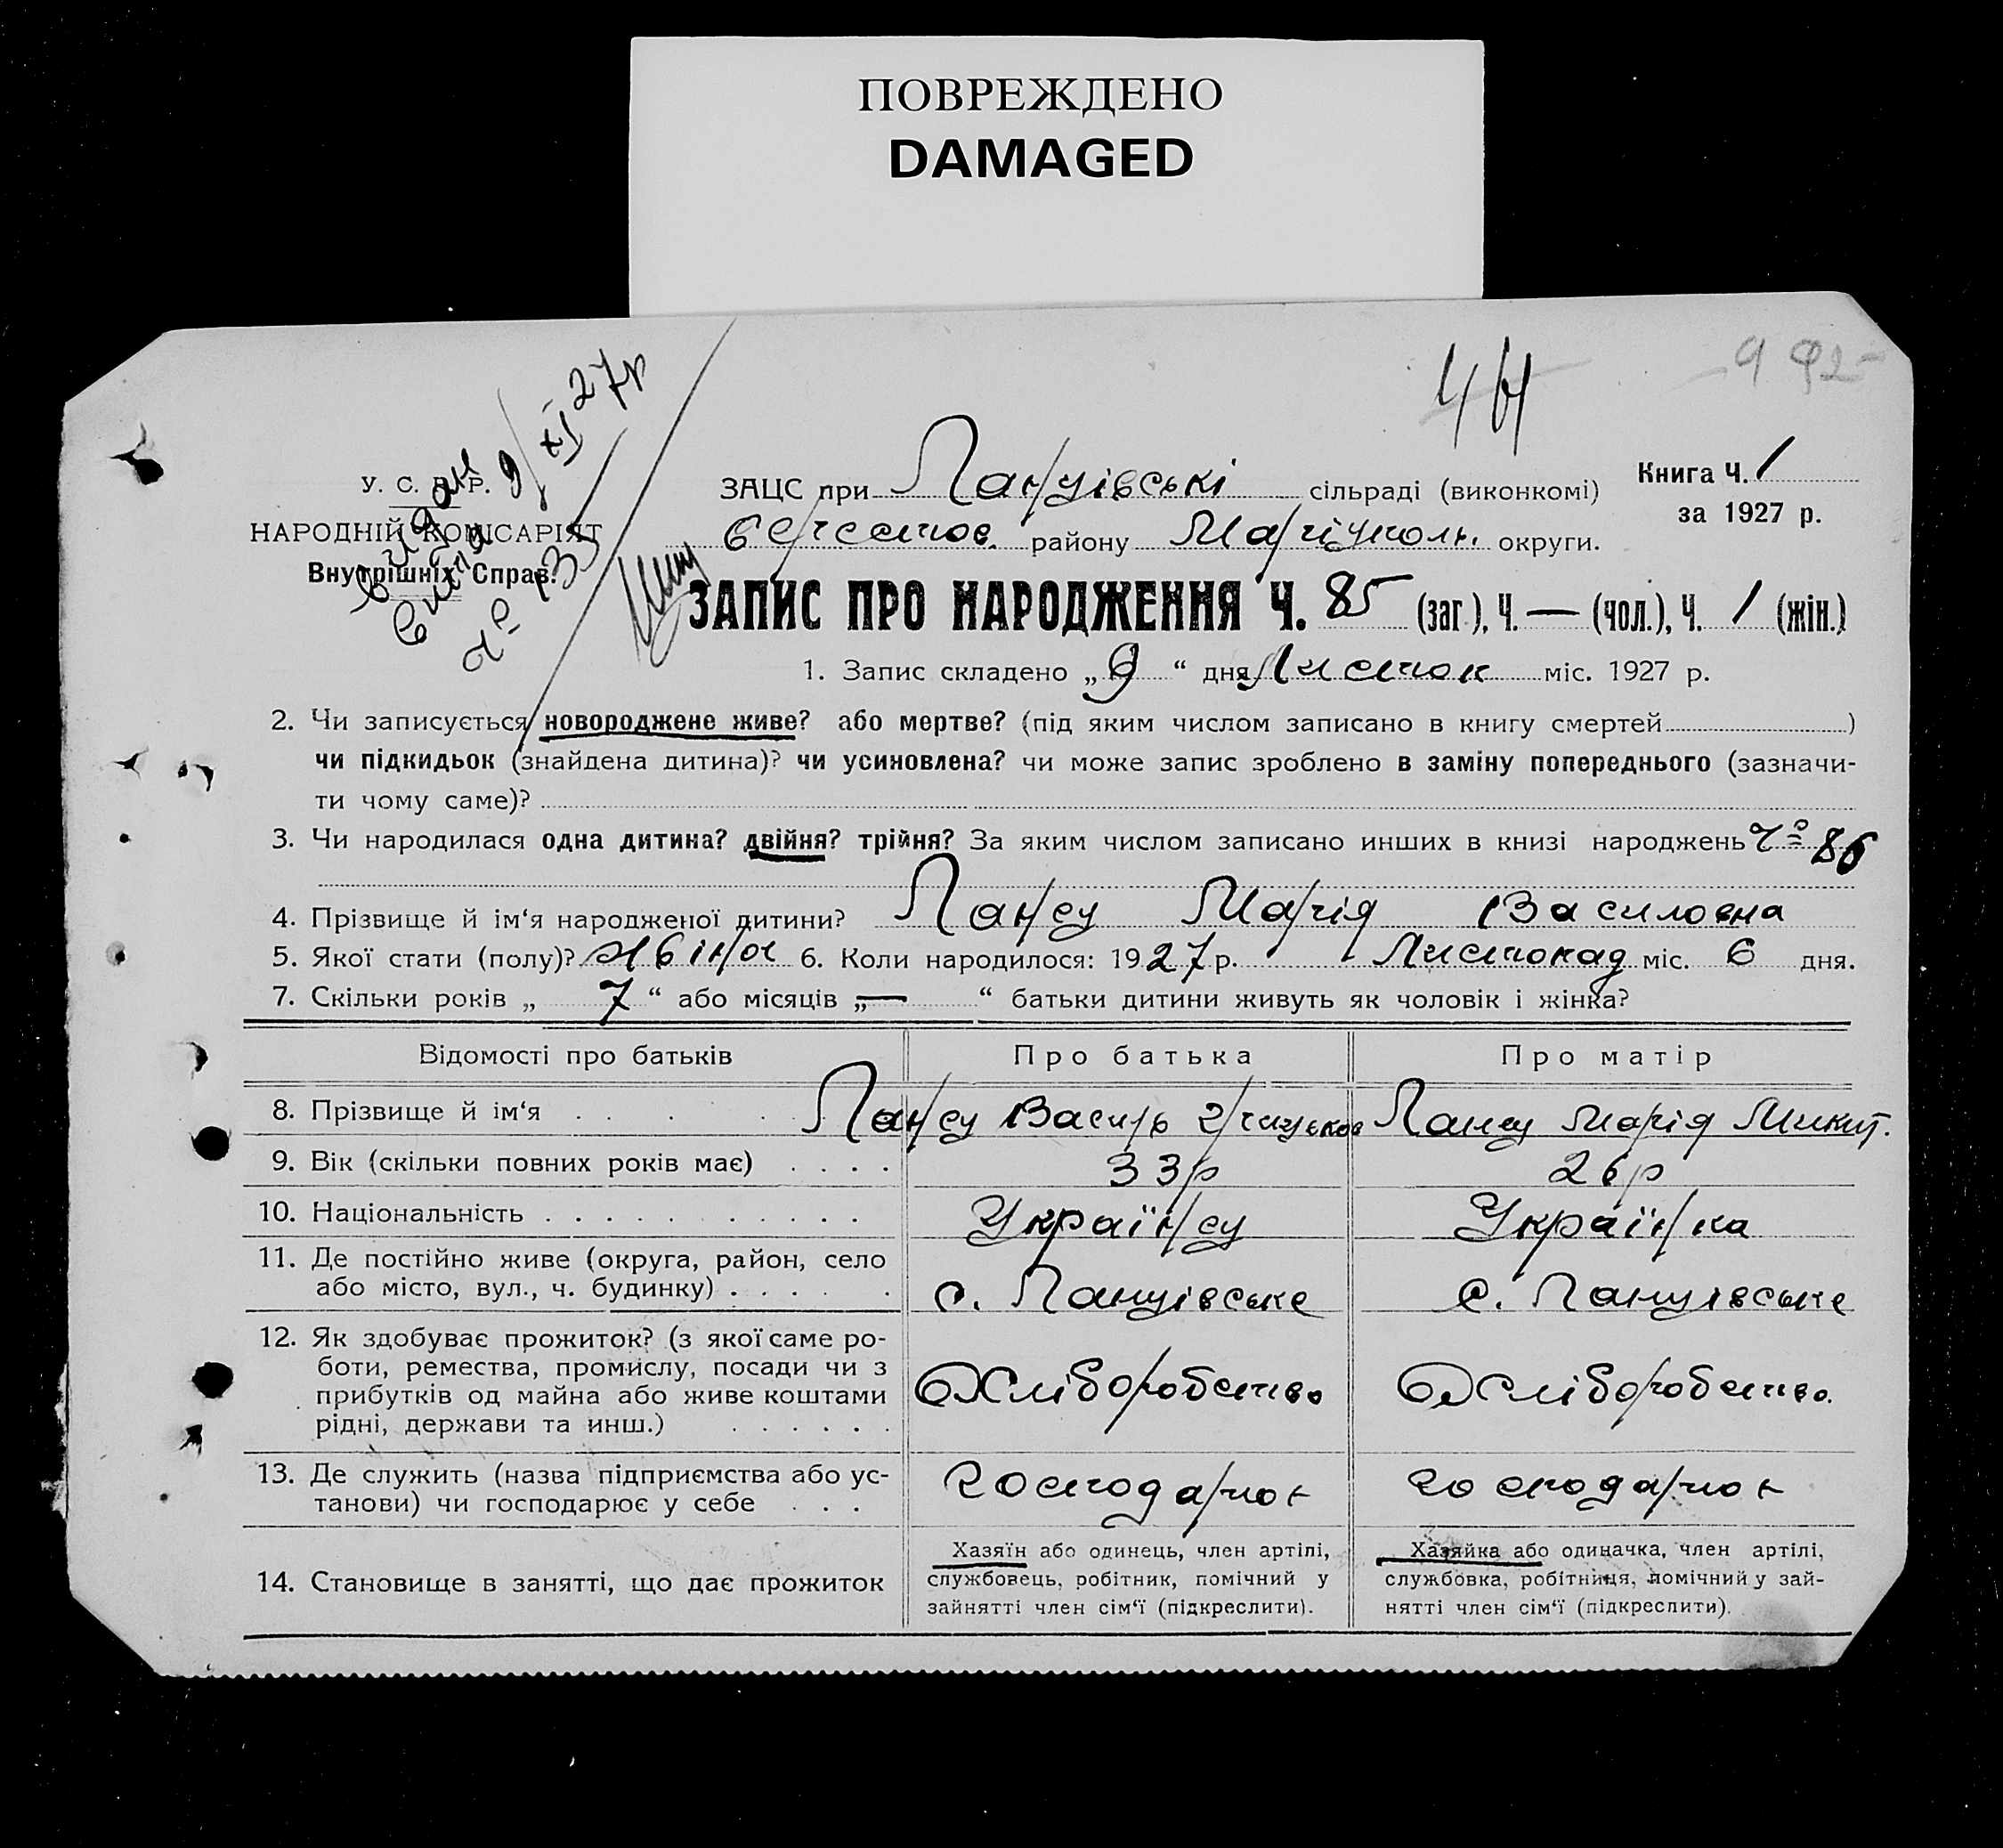 ПОВРЕЖДЕНО
DAMAGED
У. С. Р. Р.
НАРОДНІЙ КОМІСАРІЯТ
Внутрішніх Справ.
9/XI 27р
ЗАЦС при Ланцівські сільраді (виконкомі)
Книга Ч. 1
за 1927 р.
району Маріуполь. округи.
ЗАПИС ПРО НАРОДЖЕННЯ Ч. 85 (заг.), Ч. — (чол.), Ч. 1 (жін.)
1. Запис складено „ 9 “ дня Листоп міс. 1927 р.
2. Чи записується новороджене живе? або мертве? (під яким числом записано в книгу смертей )
чи підкидьок (знайдена дитина)? чи усиновлена? чи може запис зроблено в заміну попереднього (зазначи-
ти чому саме)?
3. Чи народилася одна дитина? двійня? трійня? За яким числом записано инших в книзі народжень 86
4. Прізвище й ім‘я народженої дитини? Марія Василовна
5. Якої стати (полу)? жіноч 6. Коли народилося: 1927 р. Листопад міс. 6 дня.
7. Скільки років „ 7 “ або місяців „ — “ батьки дитини живуть як чоловік і жінка?
Відомості про батьків Про батька Про матір
8. Прізвище й ім‘я Василь Марія Микит.
9. Вік (скільки повних років має) 33р 26р
10. Національність Українец Українка
11. Де постійно живе (округа, район, село
або місто, вул., ч. будинку) с. Ланцівське с. Ланцівське
12. Як здобуває прожиток? (з якої саме ро-
боти, ремества, промислу, посади чи з
прибутків од майна або живе коштами
рідні, держави та инш.) Хліборобство Хліборобство.
13. Де служить (назва підприємства або ус-
танови) чи господарює у себе господарює господарює
14. Становище в занятті, що дає прожиток
Хазяїн або одинець, член артілі,
службовець, робітник, помічний у
зайнятті член сім‘ї (підкреслити).
Хазяйка або одиначка, член артілі,
службовка, робітниця, помічний у зай-
нятті член сім‘ї (підкреслити).